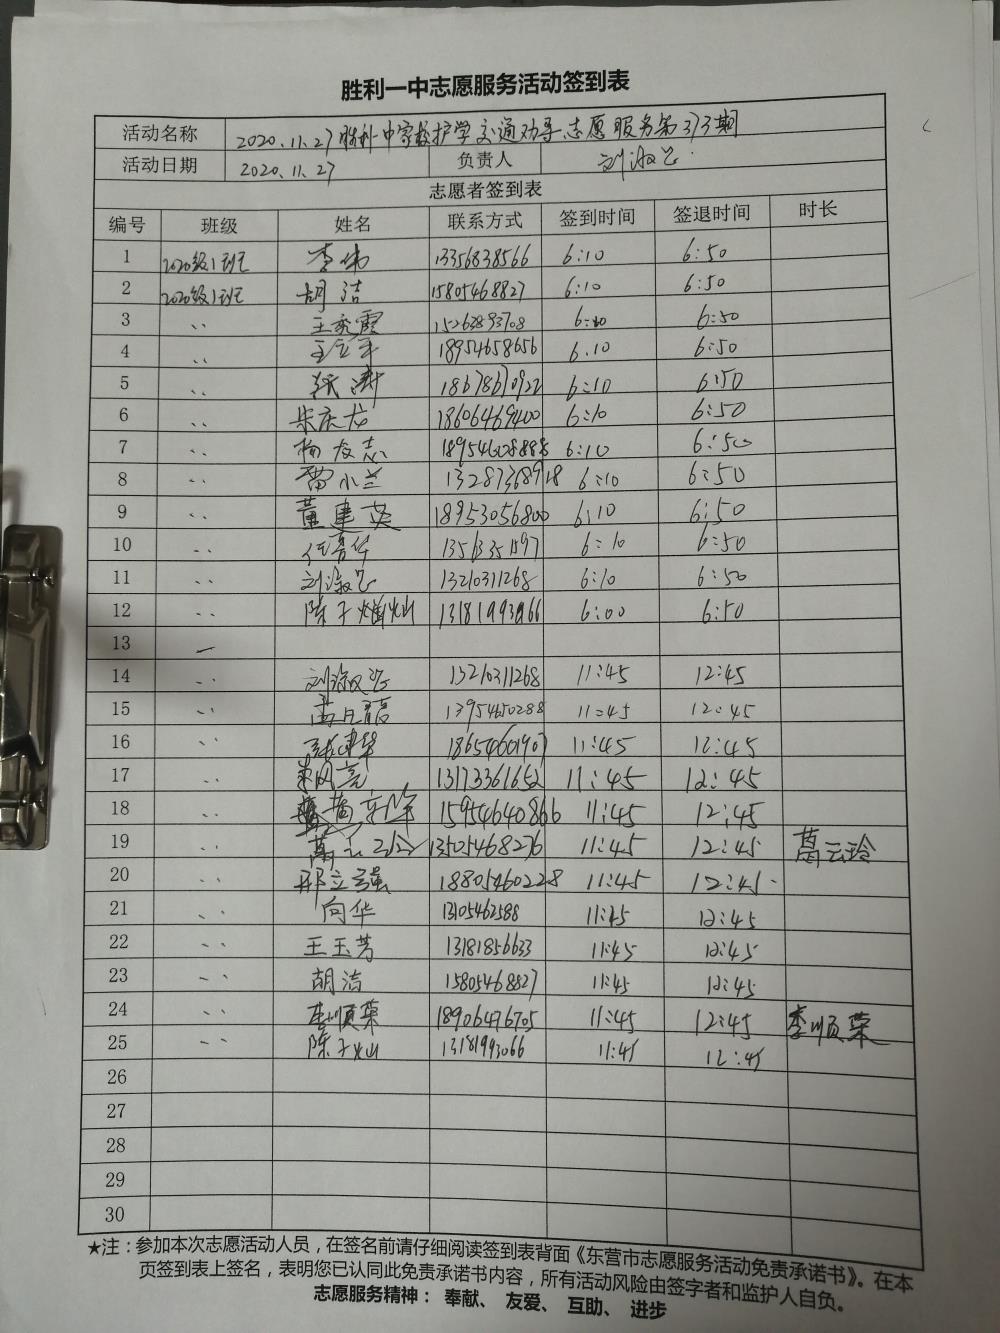 胜利一中志愿服务活动签到表
活动名称 2020.11.27胜利一中家校护学交通劝导志愿服务第373期
活动日期 2020.11.27 负责人
志愿者签到表
编号 班级 姓名 联系方式 签到时间 签退时间 时长
1 2020级1班 李伟 13356838566 6:10 6:50
2 2020级1班 胡洁 15805468827 6:10 6:50
3 〃 王秀霞 15263893708 6:10 6:50
4 〃 18954658656 6.10 6:50
5 〃 张涛 18678670922 6:10 6:50
6 〃 宋庆友 18606469400 6:10 6:50
7 〃 杨友志 18954608888 6:10 6:50
8 〃 雷小兰 13287368918 6:10 6:50
9 〃 董建英 18953056800 6:10 6:50
10 〃 6:10 6:50
11 〃 13210311268 6:10 6:50
12 〃 陈子灿 6:00 6:50
13
14 〃 13210311268 11:45 12:45
15 〃 13954650288 11:45 12:45
16 〃 张建华 18654601907 11:45 12:45
17 〃 13173361652 11:45 12:45
18 〃 15954640866 11:45 12:45
19 〃 葛云玲 13505468276 11:45 12:45 葛云玲
20 〃 邢立强 18805460228 11:45 12:45
21 〃 向华 13105462588 11:45 12:45
22 〃 王玉芳 13181856633 11:45 12:45
23 〃 胡洁 15805468827 11:45 12:45
24 〃 李顺荣 18906476705 11:45 12:45 李顺荣
25 〃 陈子灿 13181993066 11:45 12:45
26
27
28
29
30
★注：参加本次志愿活动人员，在签名前请仔细阅读签到表背面《东营市志愿服务活动免责承诺书》。在本
页签到表上签名，表明您已认同此免责承诺书内容，所有活动风险由签字者和监护人自负。
志愿服务精神： 奉献、 友爱、 互助、 进步